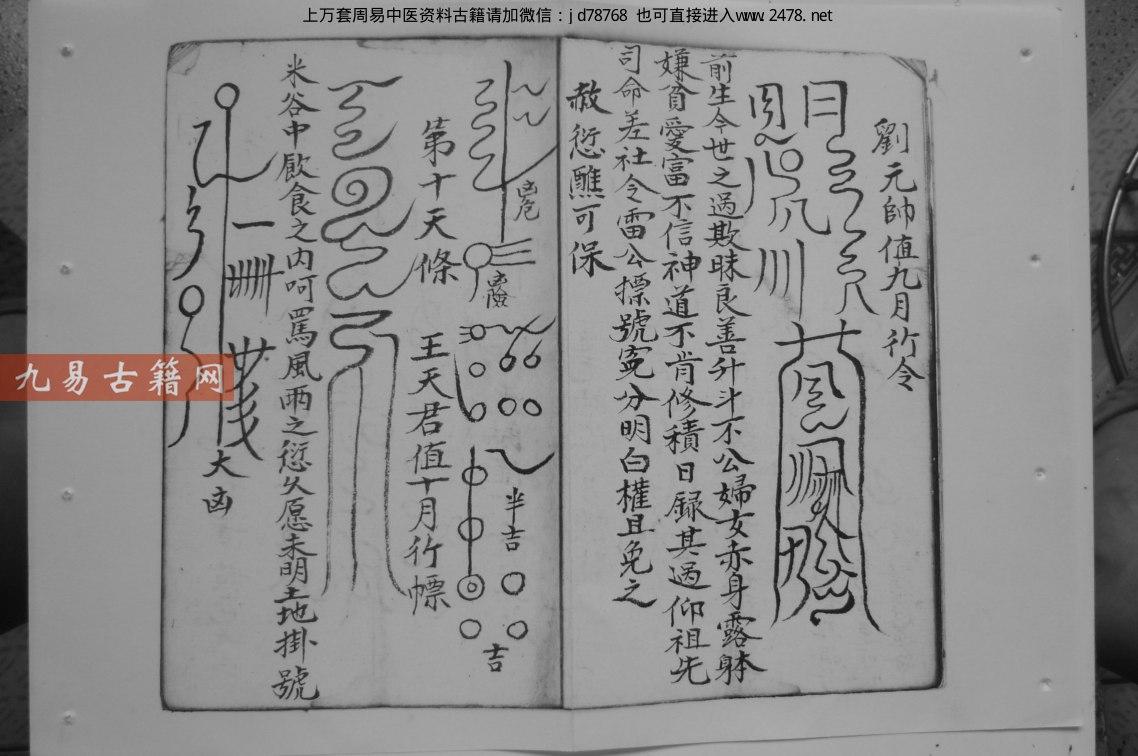 上万套周易中医资料古籍请加微信：jd78768 也可直接进入www.2478.net
劉元帥值九月行令
前生今世之過欺昧良善升斗不公婦女赤身露躰
嫌貧愛富不信神道不肯修積日録其過仰祖先
司命差社令雷公標號寃分明白權且免之
赦愆醮可保
凶危
凶險
半吉
吉
第十天條 王天君值十月行幖
米谷中飲食之内呵罵風雨之愆久愿未明土地掛號
大凶
九易古籍网